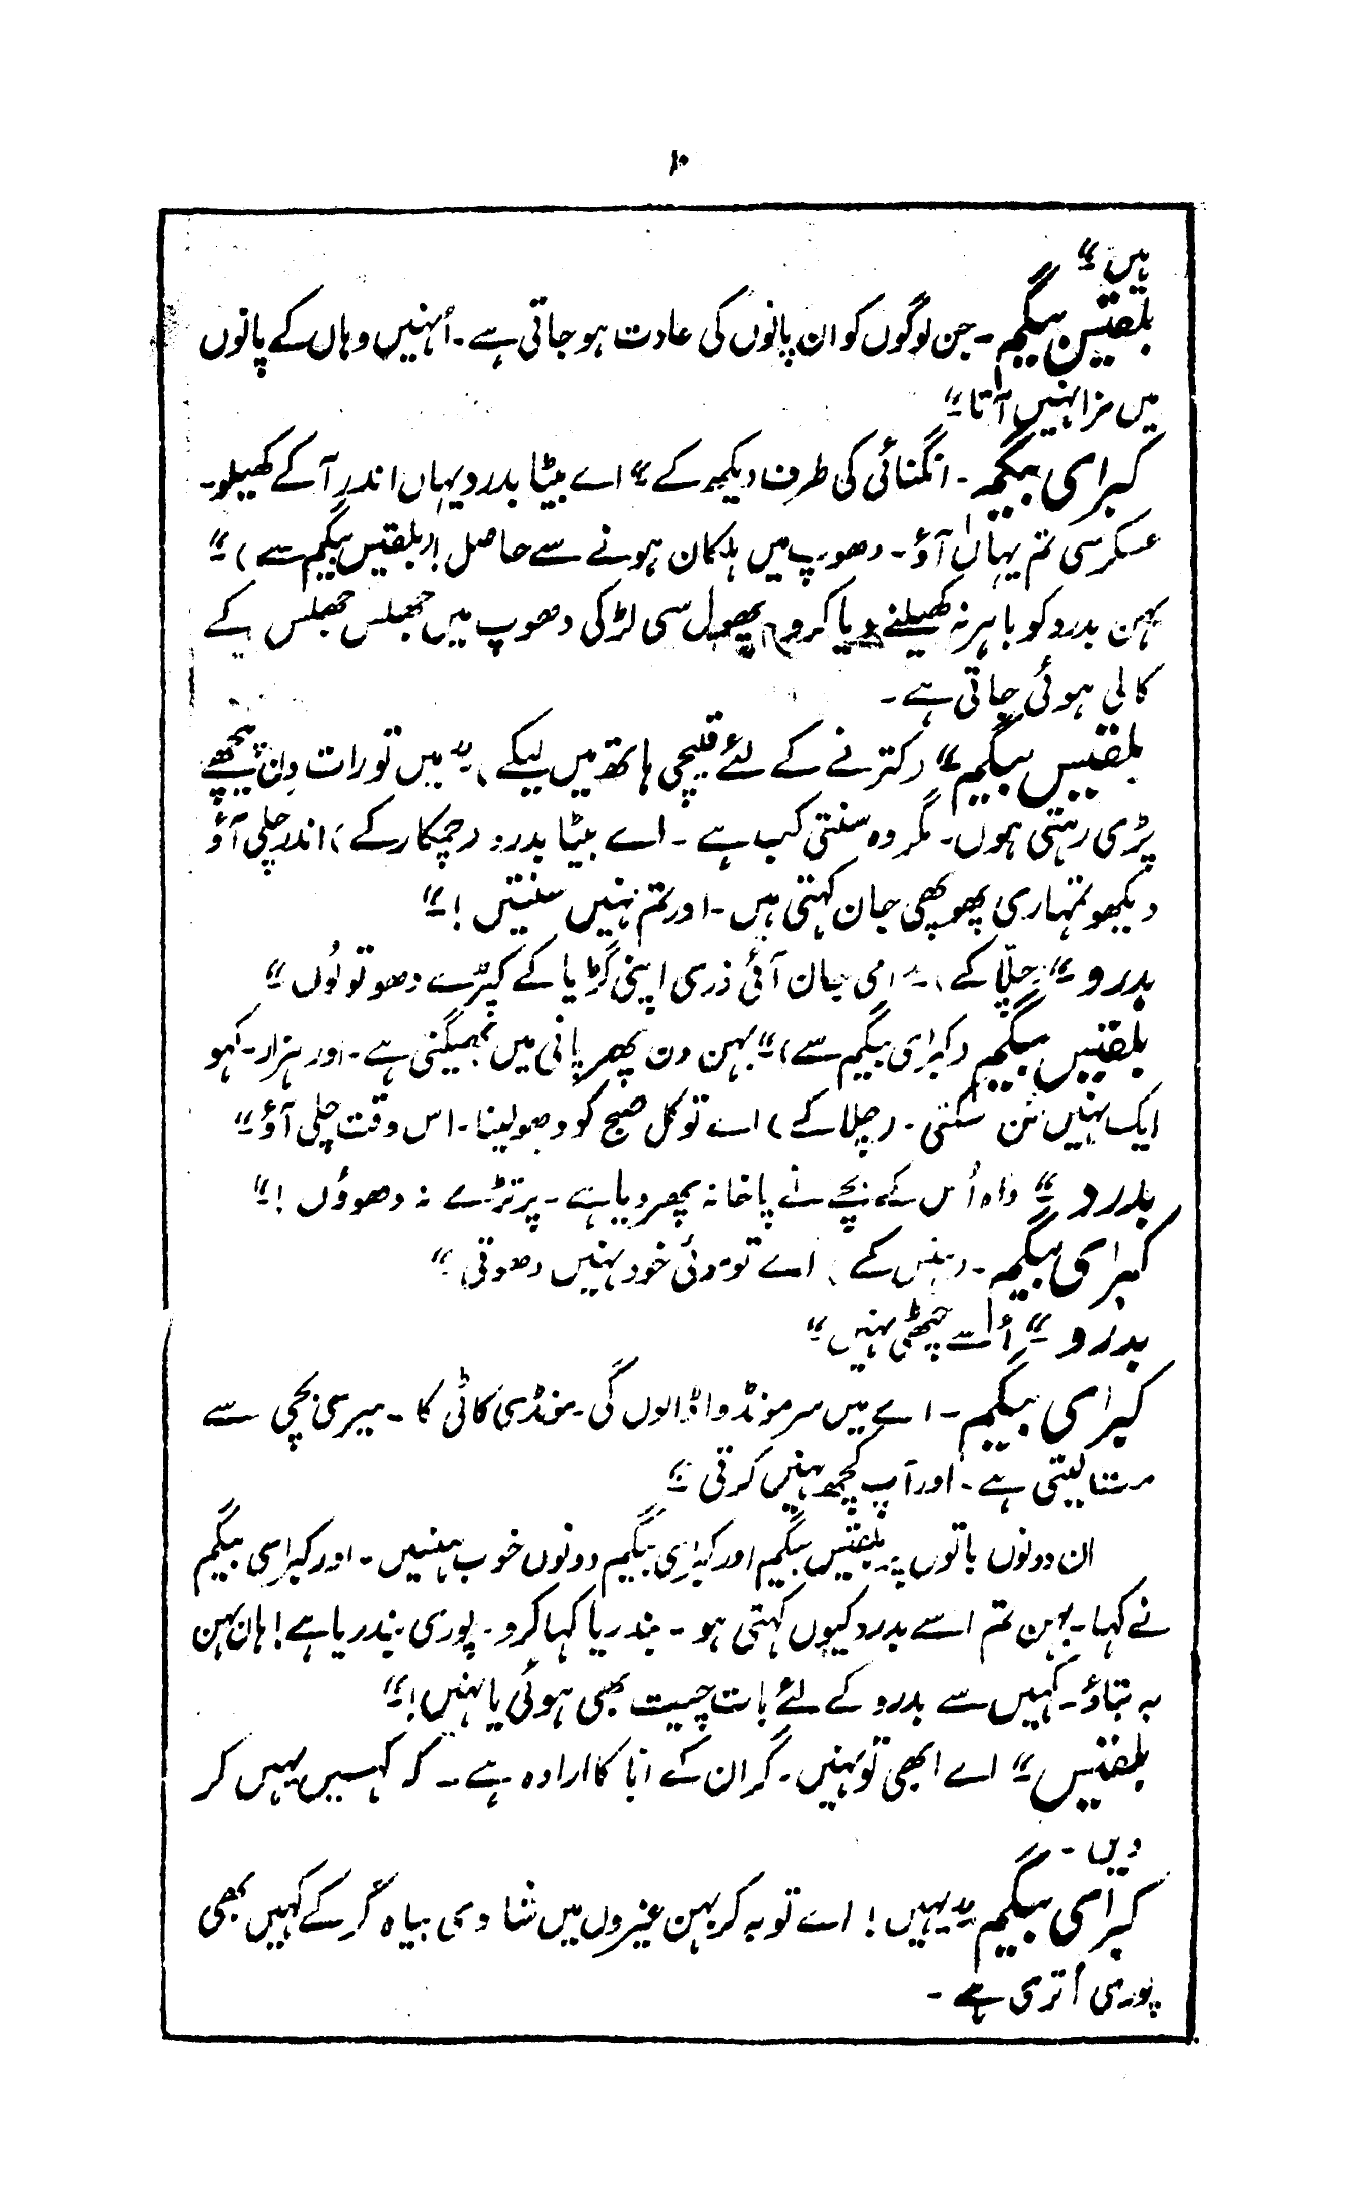 ۱۰
ہیں"
بلقیس بیگم۔ جن لوگوں کو ان پانوں کی عادت ہو جاتی ہے۔ اُنہیں وہاں کے پانوں
میں مزا نہیں آتا"
کبرای بیگم۔ انگنائی کی طرف دیکھ کے" اے بیٹا بدرو یہاں اندر آ کے کھیلو۔
عسکری تم یہاں آؤ۔ دھوپ میں ہلکان ہونے سے حاصل! (بلقیس بیگم سے)"
بہن بدرو کو باہر نہ کھیلنے دیا کرو۔ پھول سی لڑکی دھوپ میں جھلس جھلس کے
کالی ہوئی جاتی ہے۔
بلقیس بیگم" (کترنے کے لئے قینچی ہاتھ میں لیکے) "میں تو رات دن پیچھے
پڑی رہتی ہوں۔ مگر وہ سنتی کب ہے۔ اے بیٹا بدرو (چمکار کے) اندر چلی آؤ
دیکھو تمہاری پھوپھی جان کہتی ہیں۔ اور تم نہیں سنتیں!"
بدرو" (چلّا کے) "امی جان آئی ذری اپنی گڑیا کے کپڑے دھو تو لُوں"
بلقیس بیگم (کبرای بیگم سے)" بہن دن بھر پانی میں بھیگتی ہے۔ اور ہزار۔ کہو
ایک نہیں سُن سکتی۔ (چلا کے) اے تو کل صبح کو دھو لینا۔ اس وقت چلی آؤ"
بدرو" واہ اُس کے بچے نے پاخانہ پھر دیا ہے۔ پرتڑے نہ دھوؤں!"
کبرای بیگم۔ (ہنس کے) اے تو موئی خود نہیں دھوتی"
بدرو" اُسے چھٹی نہیں"
کبرای بیگم۔ اے میں سر مونڈوا ڈالوں گی۔ مونڈی کاٹی کا۔ میری بچی سے
ستنا لیتی ہے۔ اور آپ کچھ نہیں کرتی"
ان دونوں باتوں پر بلقیس بیگم اور کبرای بیگم دونوں خوب ہنسیں۔ اور کبرای بیگم
نے کہا۔ بہن تم اسے بدرو کیوں کہتی ہو۔ بندریا کہا کرو۔ پوری بندریا ہے! ہاں بہن
یہ بتاؤ۔ کہیں سے بدرو کے لئے بات چیت بھی ہوئی یا نہیں!"
بلقیس" اے ابھی تو نہیں۔ مگر ان کے ابا کا ارادہ ہے۔ کہ کہیں یہیں کر
دیں۔
کبرای بیگم "یہیں! اے توبہ کر بہن غیروں میں شادی بیاہ کر کے کہیں بھی
پوری اُتری ہے۔